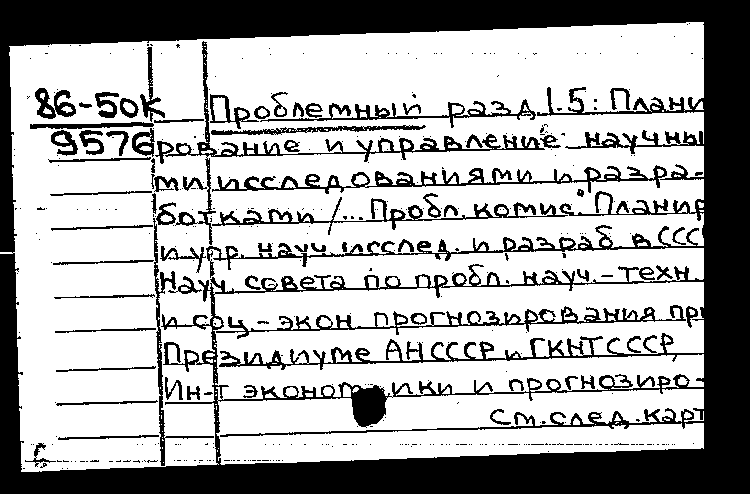 86-50К Проблемный разд 1.5: Плани
9576 рование и управление научны
ми исследованиями и разра-
ботками /... Пробл. комис. "Планир
и упр. науч. исслед. и разраб в ССС
Науч. совета по пробл. науч.-техн.
и соц.-экон. прогнозирования пр
Президиуме АН СССР и ГКНТ СССР,
Ин-т эконом ики и прогнозиро-
см. след. карт